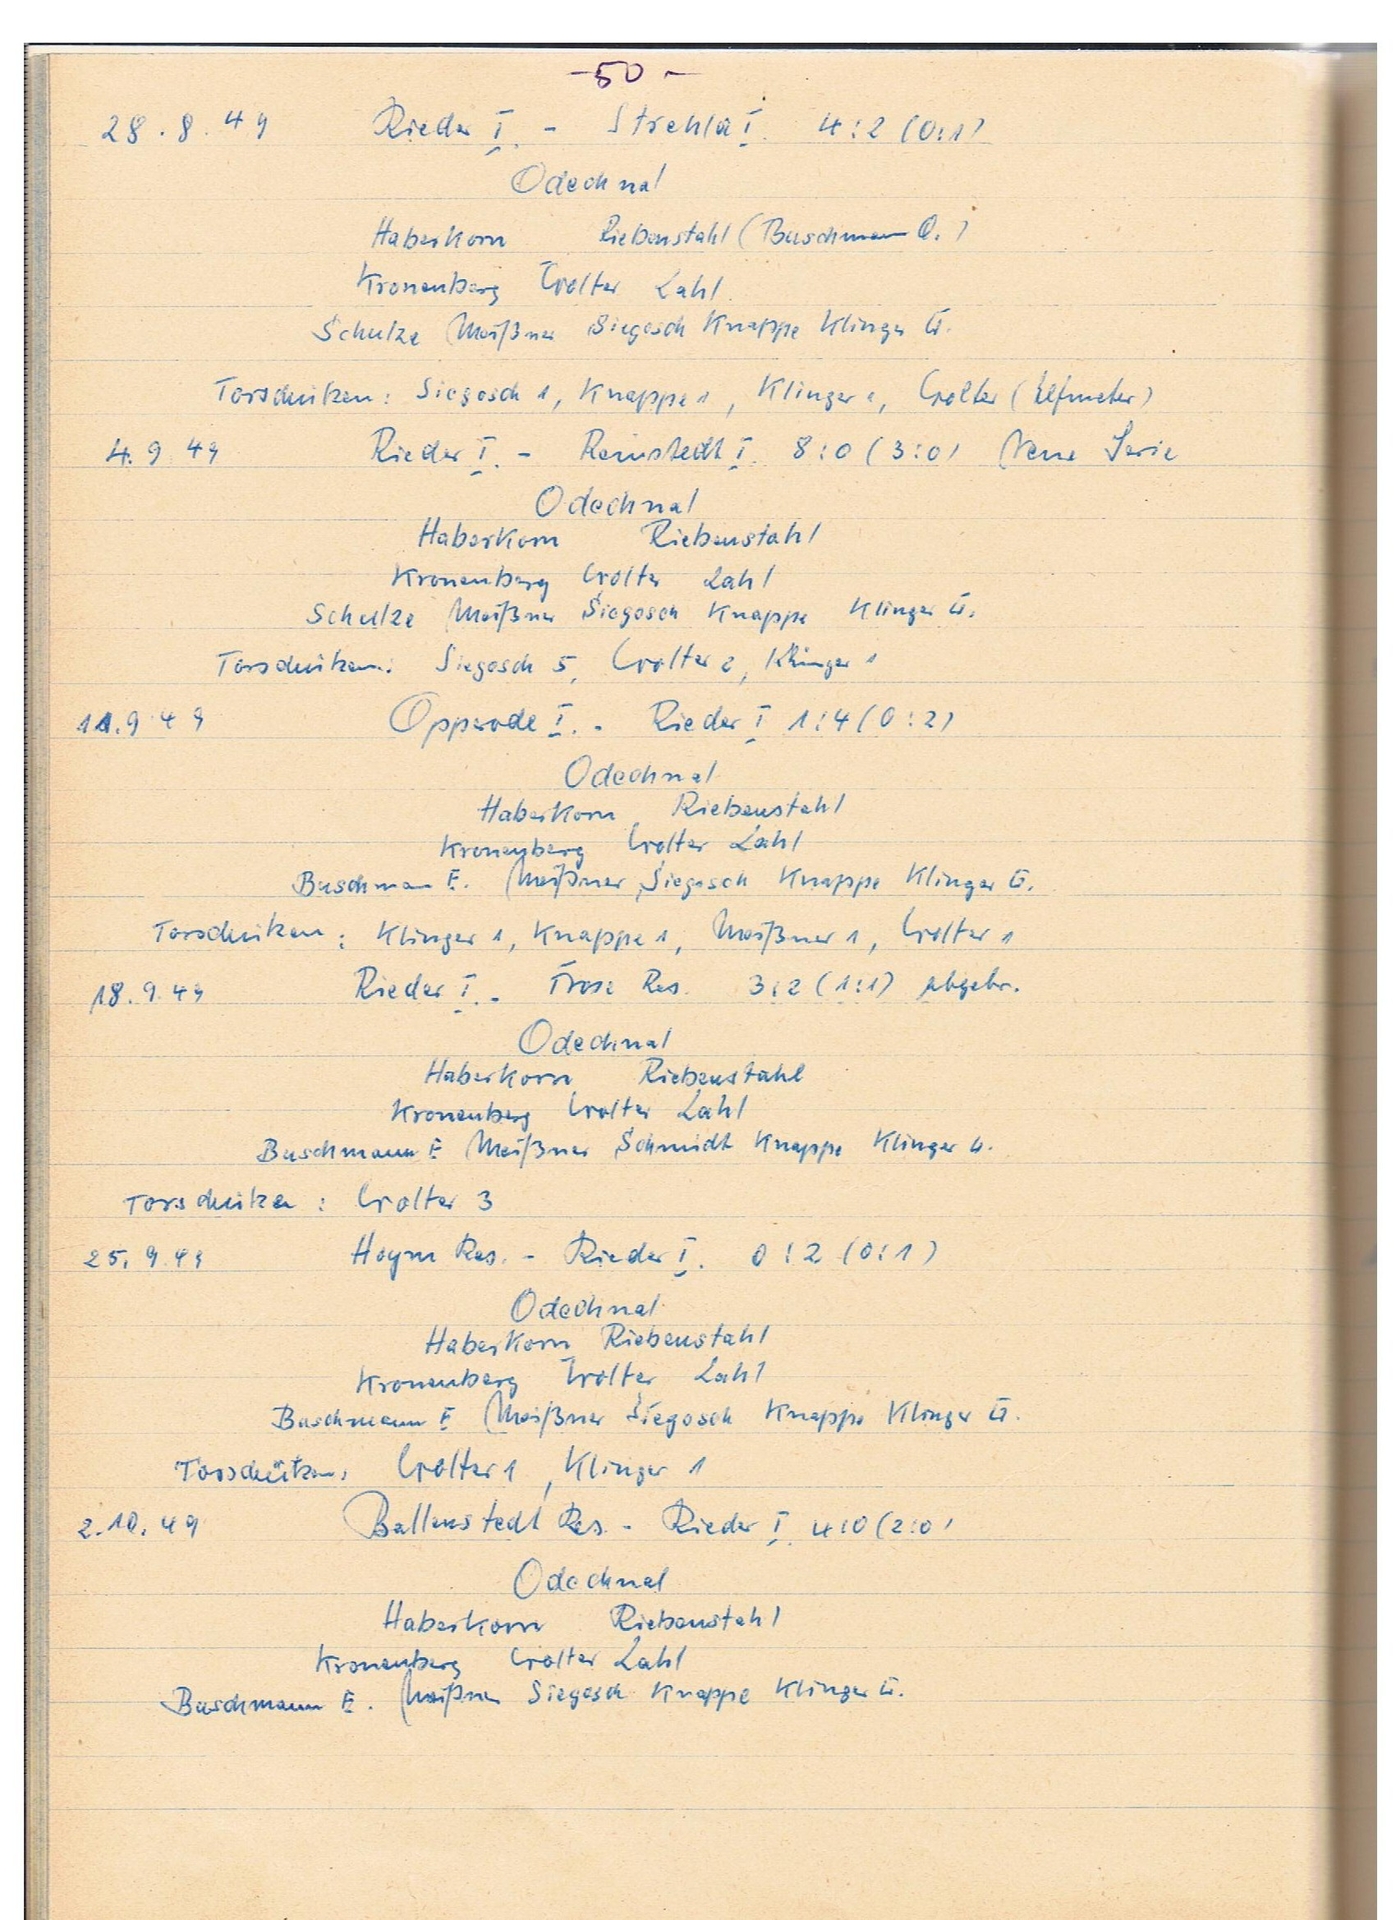 -50-
28.8.49 Rieder I. - Strehla I. 4:2 (0:1)
Odechnal
Haberkorn Riebenstahl (Buschmann O.)
Kronenberg Wolter Lahl
Schulze Meißner Siegosch Knappe Klinger G.
Torschützen: Siegosch 1, Knappe 1, Klinger 1, Wolter (Elfmeter)
4.9.49 Rieder I. - Reinstedt I. 8:0 (3:0) Neue Serie
Odechnal
Haberkorn Riebenstahl
Kronenberg Wolter Lahl
Schulze Meißner Siegosch Knappe Klinger G.
Torschützen: Siegosch 5, Wolter 2, Klinger 1
11.9.49 Opperode I. - Rieder I 1:4 (0:2)
Odechnal
Haberkorn Riebenstahl
Kronenberg Wolter Lahl
Buschman E. Meißner Siegosch Knappe Klinger G.
Torschützen: Klinger 1, Knappe 1, Meißner 1, Wolter 1
18.9.49 Rieder I. - Frose Res. 3:2 (1:1) abgebr.
Odechnal
Haberkorn Riebenstahl
Kronenberg Wolter Lahl
Buschmann E Meißner Schmidt Knappe Klinger G.
Torschützen: Wolter 3
25.9.49 Hoym Res. - Rieder I. 0:2 (0:1)
Odechnal
Haberkorn Riebenstahl
Kronenberg Wolter Lahl
Buschmann E Meißner Siegosch Knappe Klinger G.
Torschützen: Wolter 1, Klinger 1
2.10.49 Ballenstedt Res. - Rieder I. 4:0 (2:0)
Odechnal
Haberkorn Riebenstahl
Kronenberg Wolter Lahl
Buschmann E. Meißner Siegosch Knappe Klinger G.